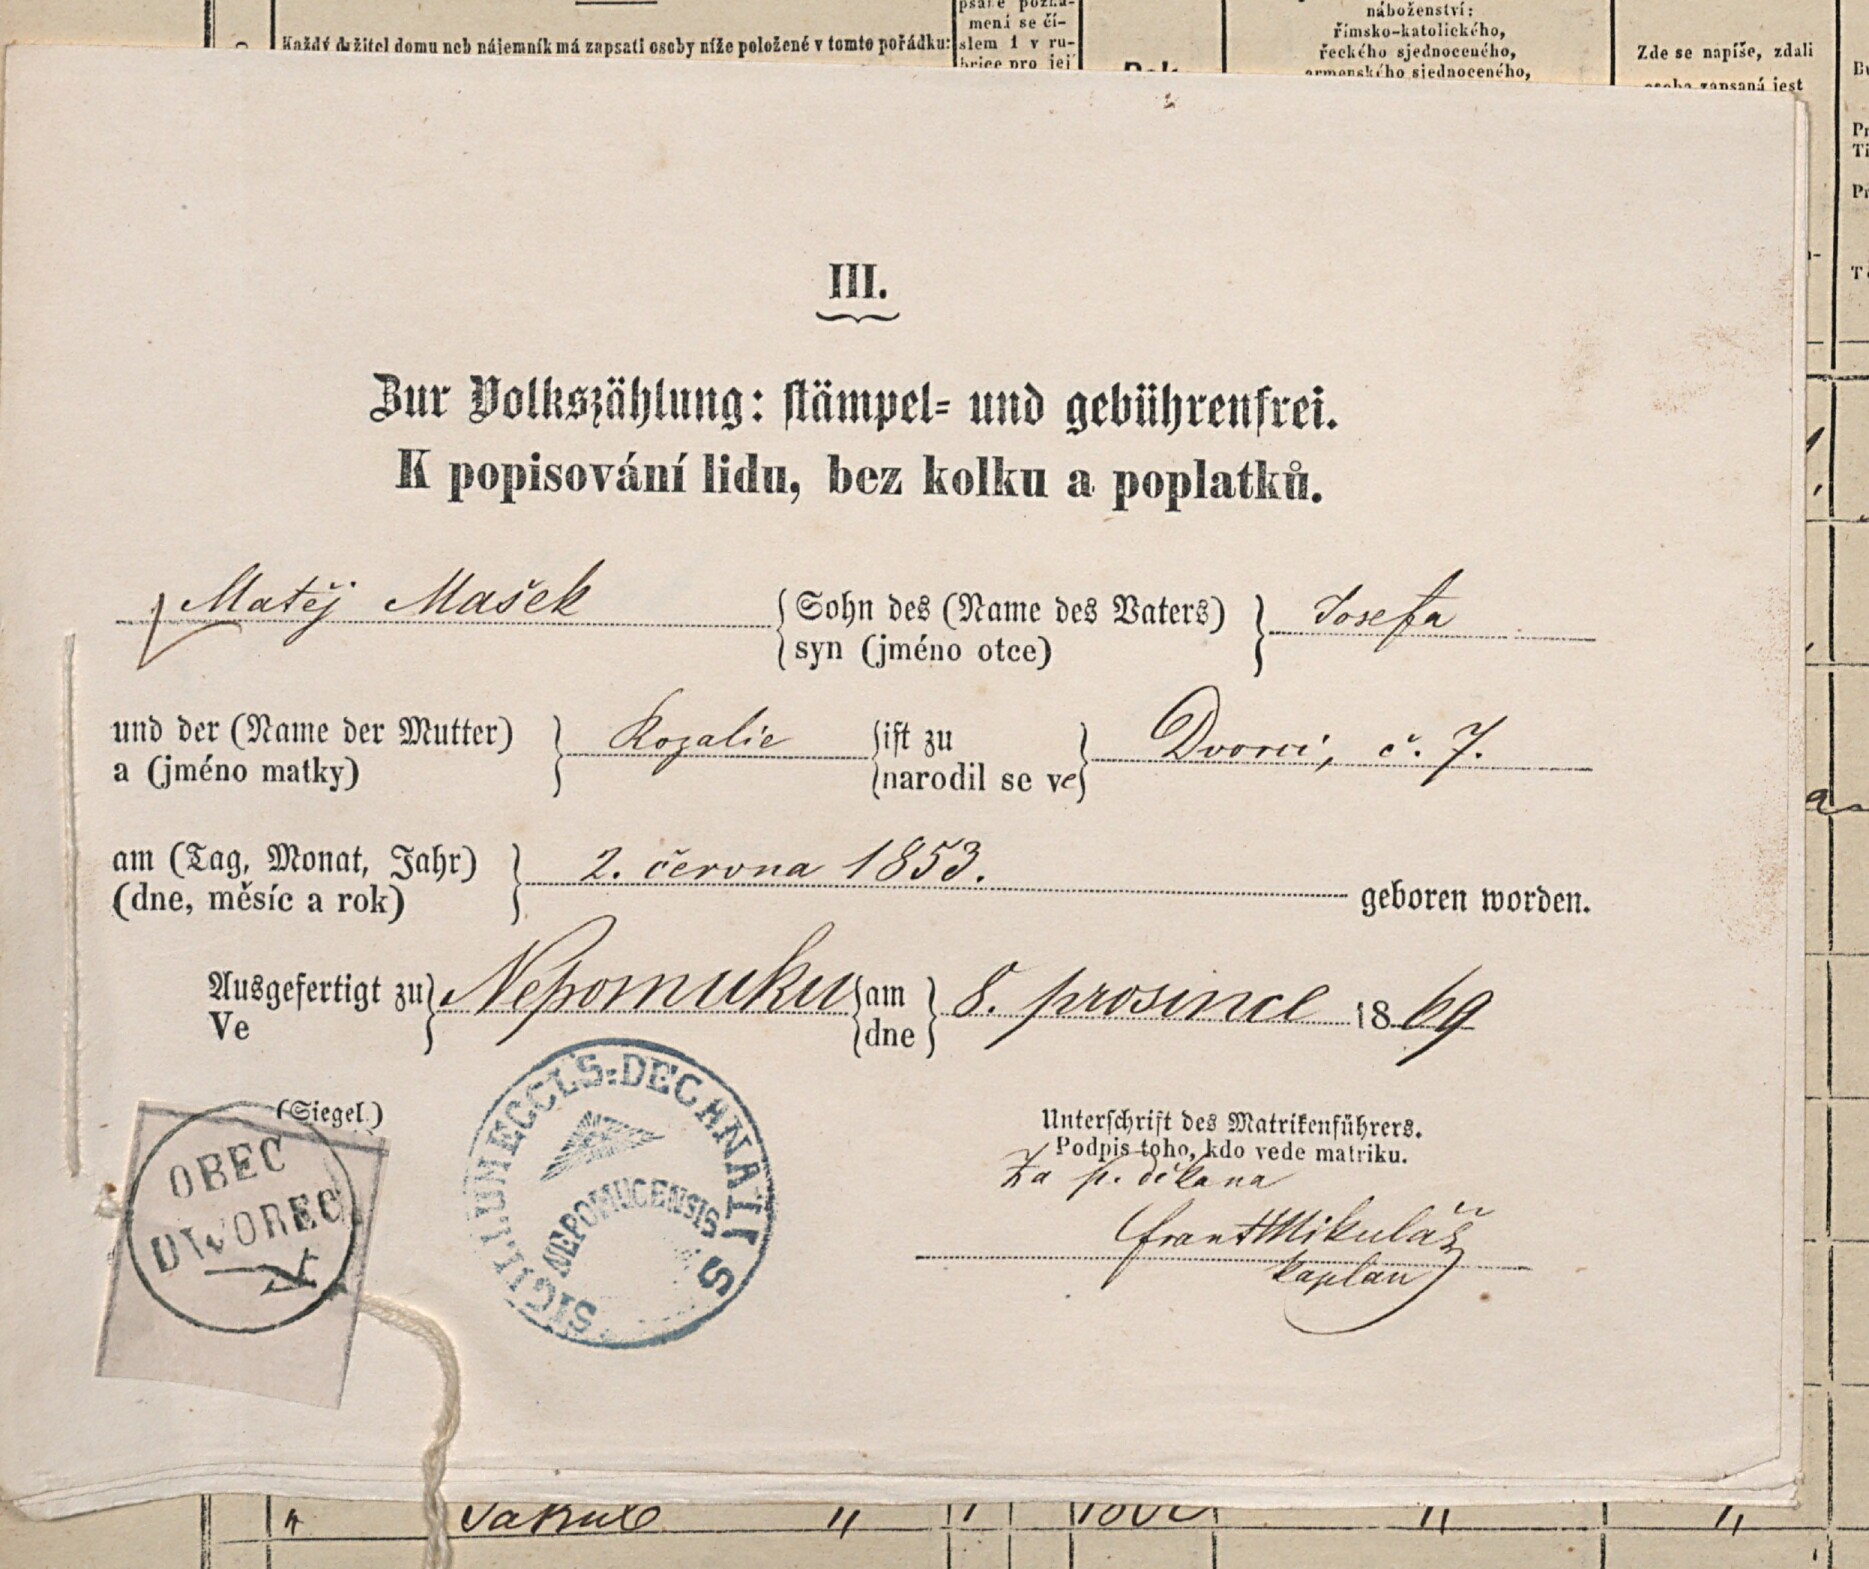 psané pozna-
mení se čí-
slem 1 v ru-
brice pro její
Každý držitel domu neb nájemník má zapsati osoby níže položené v tomto pořádku:
náboženství:
římsko-katolického,
řeckého sjednoceného,
armenského sjednoceného,
Zde se napíše, zdali
osoba zapsaná jest
III.
Zur Volkszählung: stämpel- und gebührenfrei.
K popisování lidu, bez kolku a poplatků.
Matěj Mašek { Sohn des (Name des Vaters) } Josefa
syn (jméno otce)
und der (Name der Mutter) } Rozalie { ist zu } Dvorci, č. 7.
a (jméno matky) narodil se ve
am (Tag, Monat, Jahr) } 2. června 1853.
(dne, měsíc a rok) geboren worden.
Ausgefertigt zu } Nepomuku { am } 8. prosince 1869
Ve dne
(Siegel.)
OBEC
DWOREC
SIGILLUM ECCLS: DECANATUS
NEPOMUCENSIS
Unterschrift des Matrikenführers.
Podpis toho, kdo vede matriku.
Za p. děkana
Frant Mikuláš
kaplan
Jakub " "